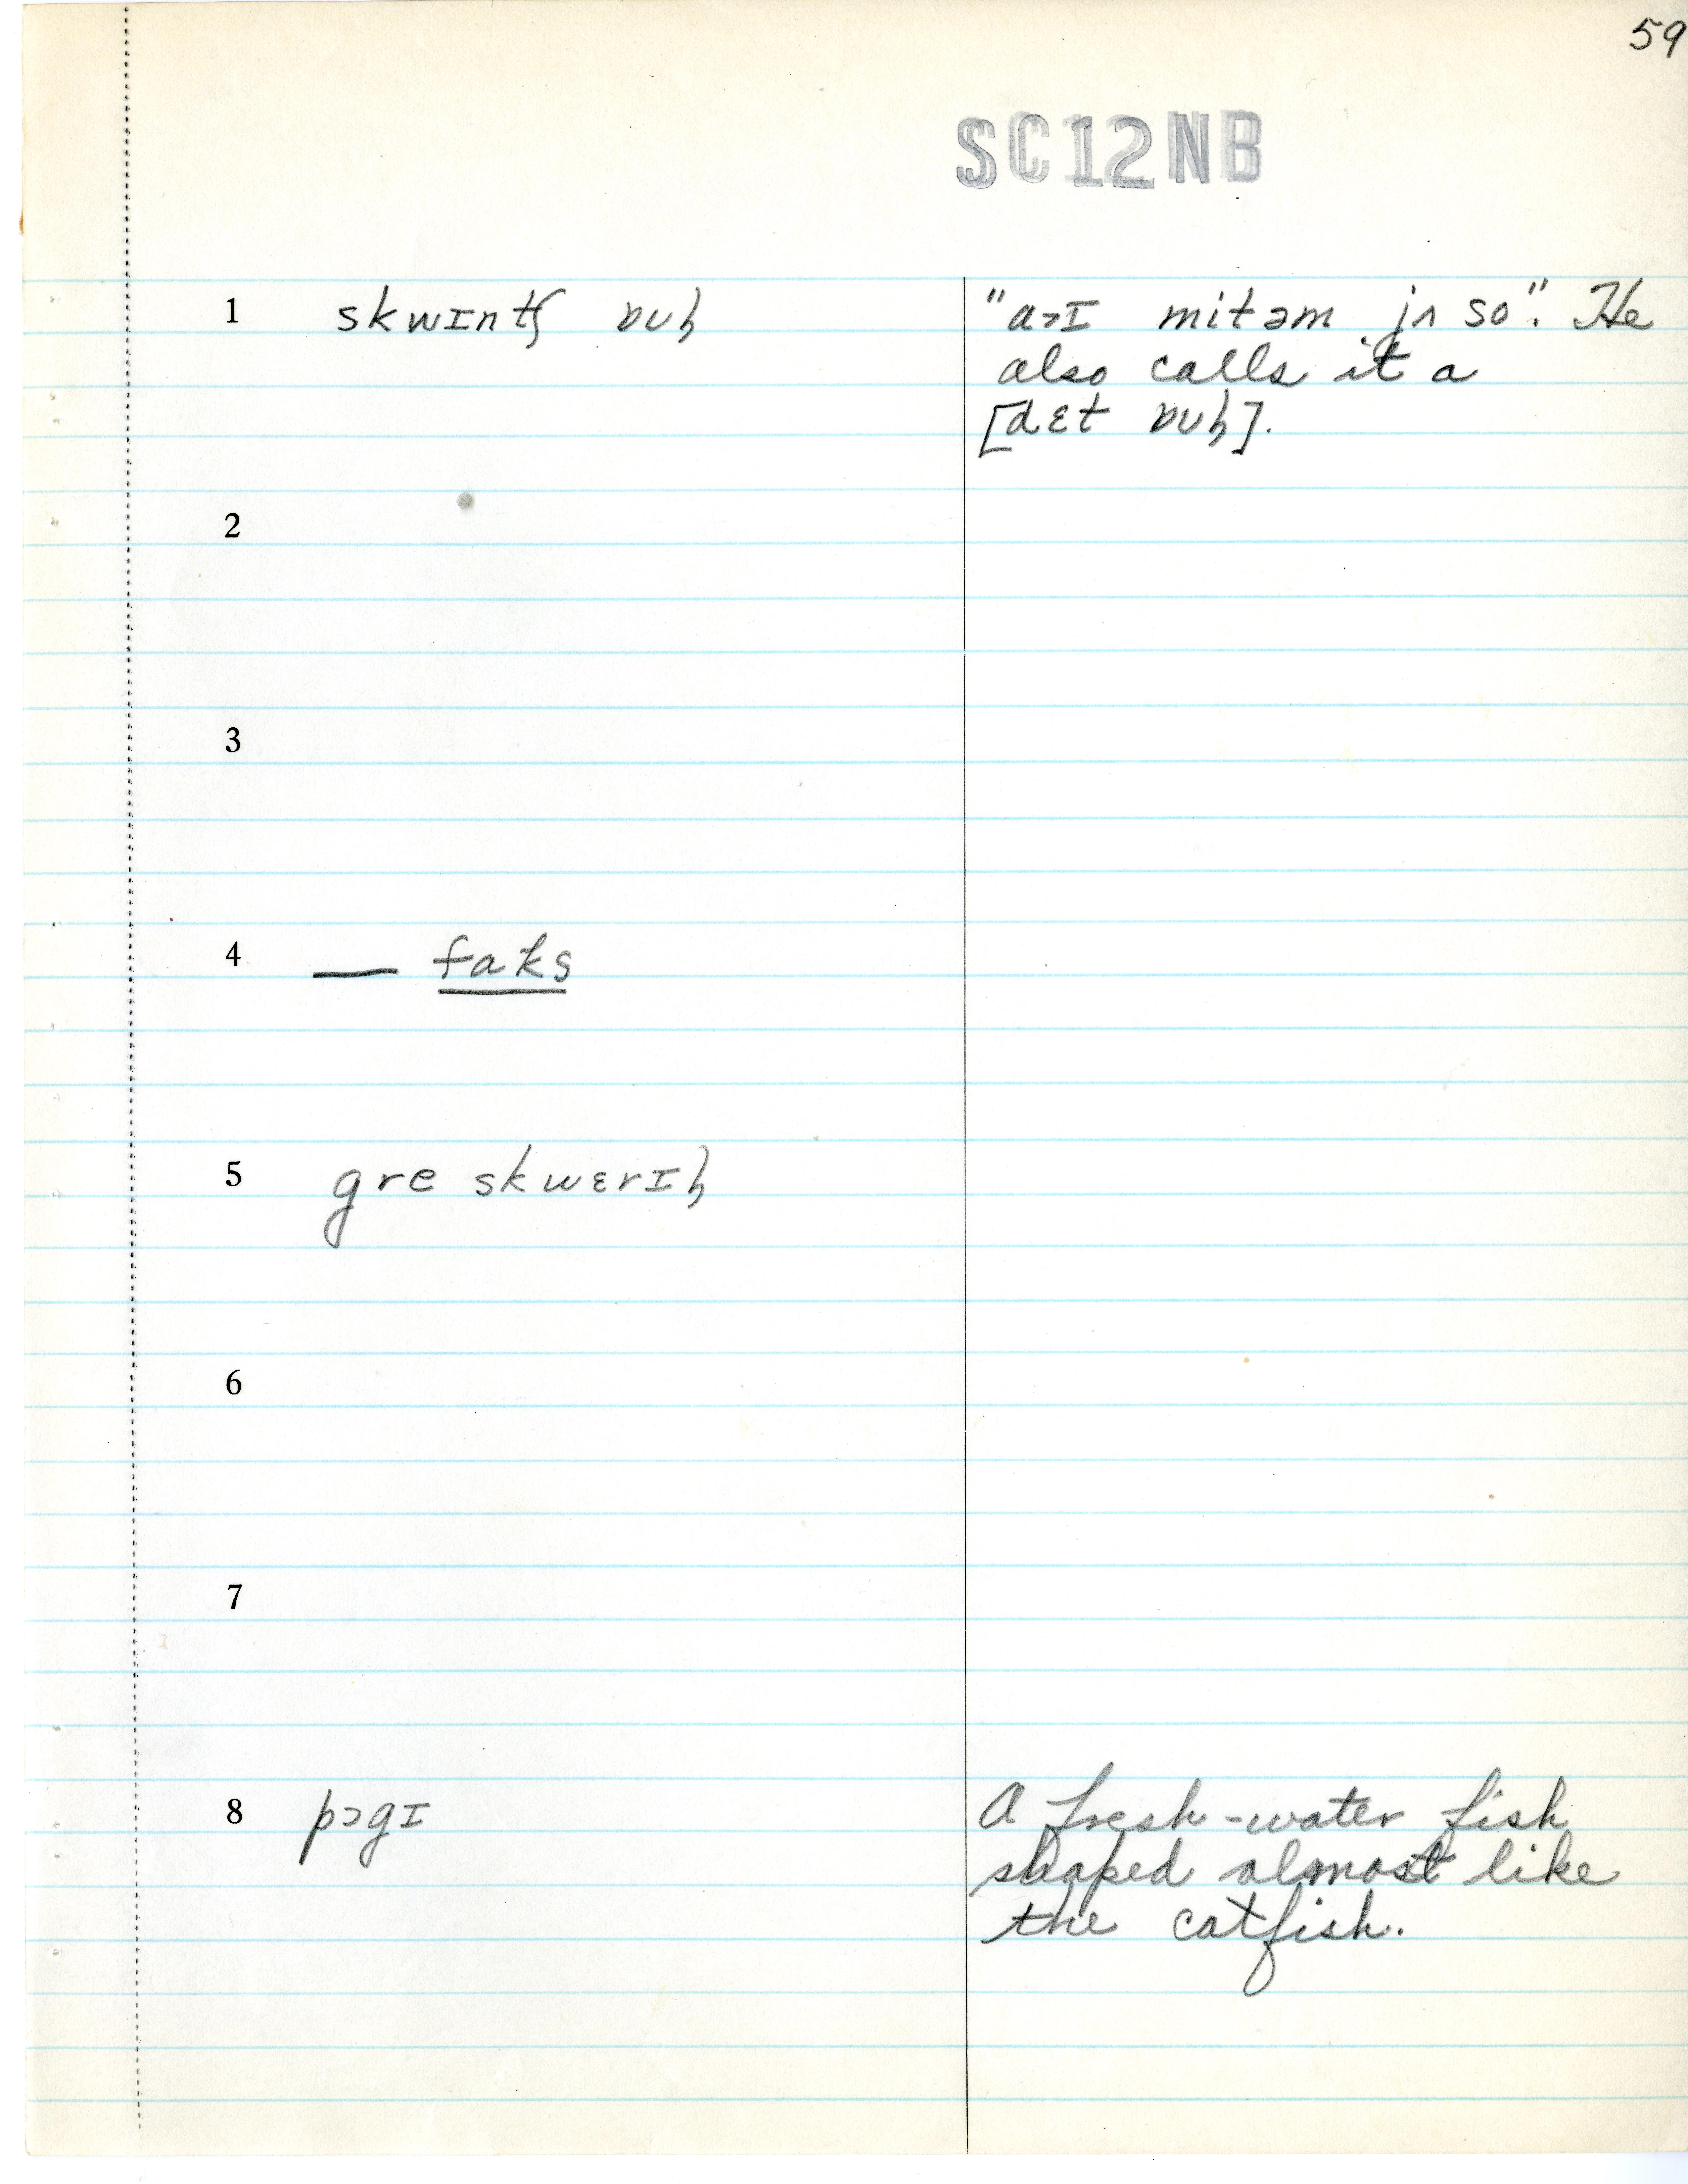 59
SC12NB
1 skwɪntʃ ʋuɫ "aɪ mitəm jʌ so". He
also calls it a
[dɛt ʋuɫ].
2
3
4 — faks
5 gre skwɛrɪɫ
6
7
8 pɔgɪ A fresh-water fish
shaped almost like
the catfish.